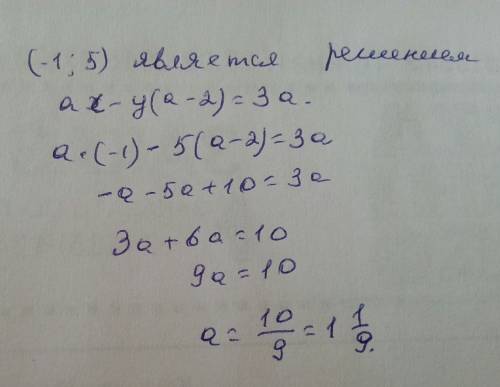 (-1; 5) является решением
ax - y(a - 2) = 3a.
a · (-1) - 5(a - 2) = 3a
-a - 5a + 10 = 3a
3a + 6a = 10
9a = 10
a = 10/9 = 1 1/9.